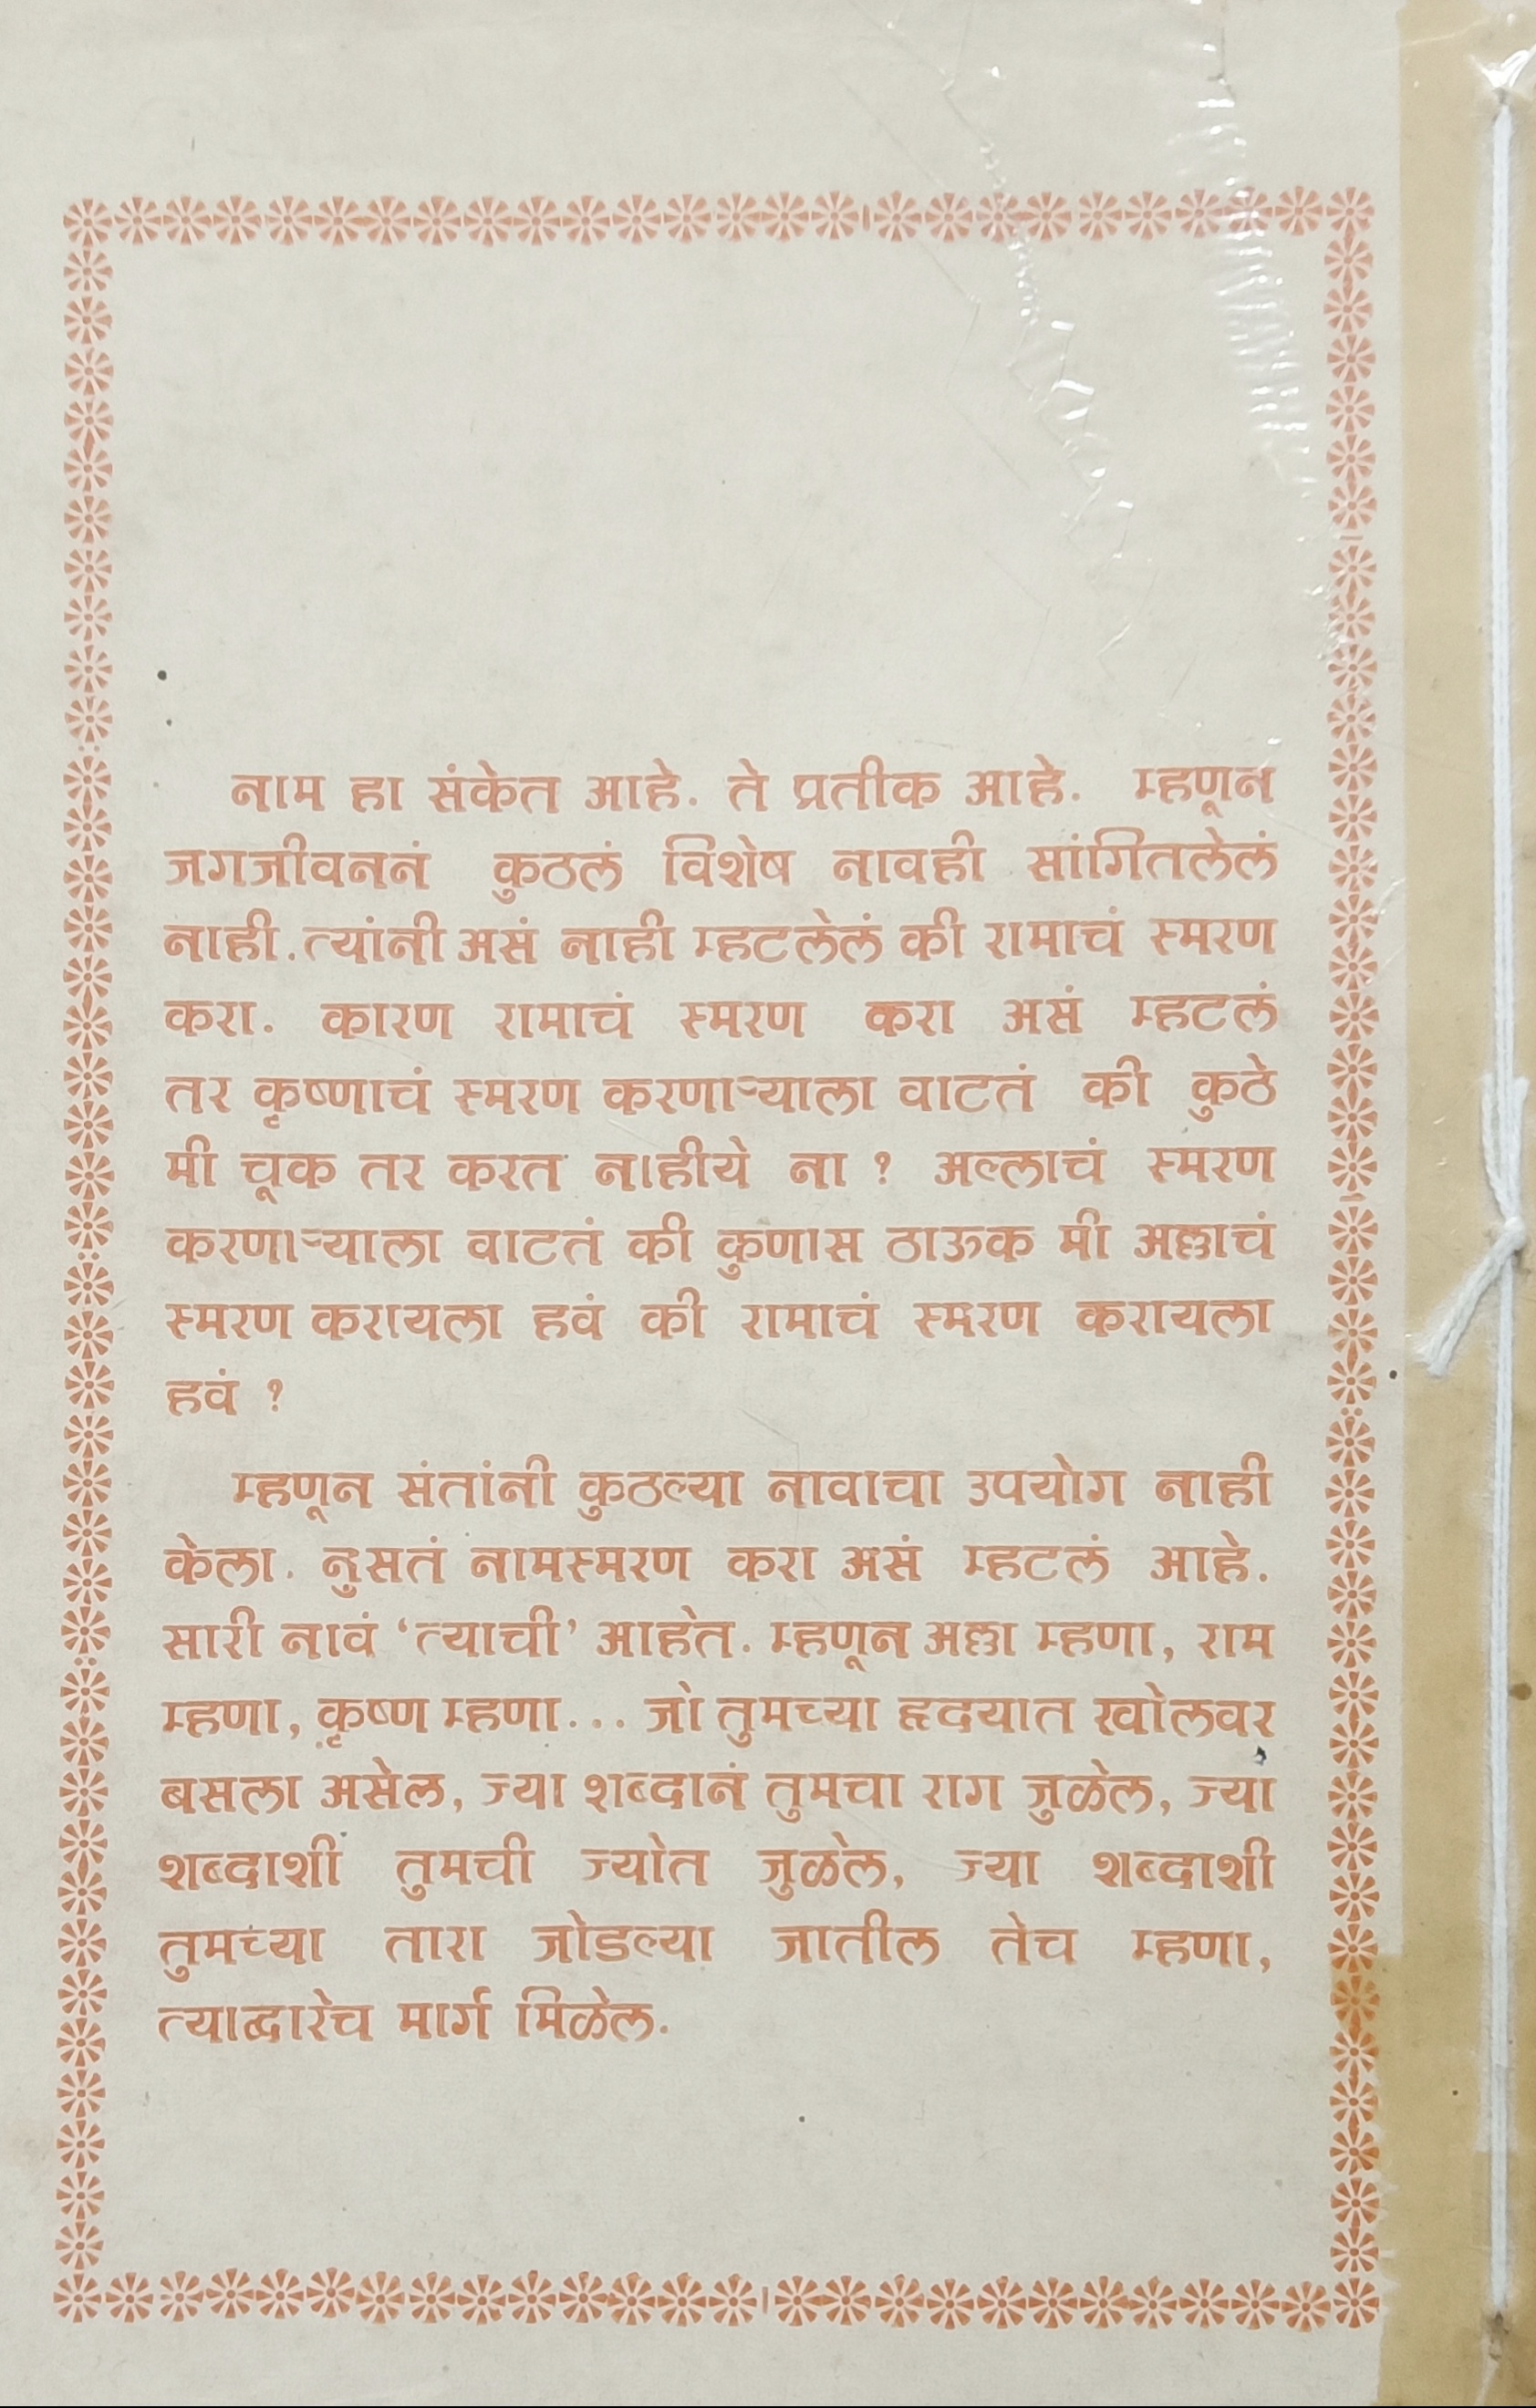 नाम हा संकेत आहे. ते प्रतीक आहे. म्हणून
जगजीवननं कुठलं विशेष नावही सांगितलेलं
नाही. त्यांनी असं नाही म्हटलेलं की रामाचं स्मरण
करा. कारण रामाचं स्मरण करा असं म्हटलं
तर कृष्णाचं स्मरण करणाऱ्याला वाटतं की कुठे
मी चूक तर करत नाहीये ना ? अल्लाचं स्मरण
करणाऱ्याला वाटतं की कुणास ठाऊक मी अल्लाचं
स्मरण करायला हवं की रामाचं स्मरण करायला
हवं ?
म्हणून संतांनी कुठल्या नावाचा उपयोग नाही
केला. नुसतं नामस्मरण करा असं म्हटलं आहे.
सारी नावं ‘त्याची’ आहेत. म्हणून अल्ला म्हणा, राम
म्हणा, कृष्ण म्हणा... जो तुमच्या हृदयात खोलवर
बसला असेल, ज्या शब्दानं तुमचा राग जुळेल, ज्या
शब्दाशी तुमची ज्योत जुळेल, ज्या शब्दाशी
तुमच्या तारा जोडल्या जातील तेच म्हणा,
त्याद्वारेच मार्ग मिळेल.